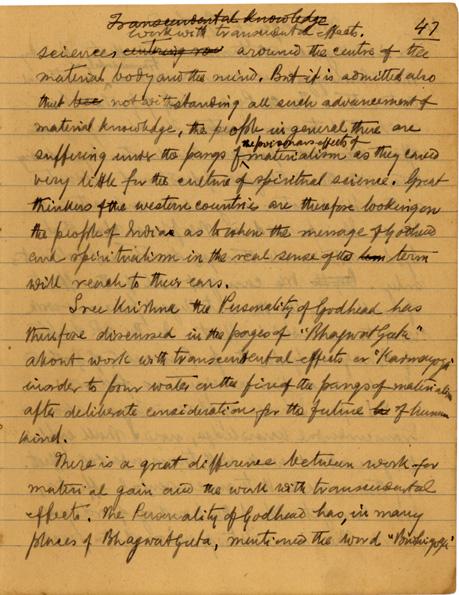 Transcendental Knowledge
47
Work with transcendental effects.
sciences centring round around the centre of the
material body and the mind. But it is admitted also
that notwithstanding all such advancement of
material knowledge, the people in general there are
the poisonous effects of
suffering under the pangs of materialism as they cared
very little for the culture of spiritual science. Great
thinkers of the western countries are therefore looking on
the people of India as to when the message of Godhead
and spiritualism in the real sense of the term
will reach to their ears.
Sree Krishna the Personality of Godhead has
therefore discussed in the pages of "BhagwatGeeta"
about work with transcendental effects or "Karmayoga"
in order to pour water on the fire of the pangs of materialism
after deliberate consideration for the future of human
kind.
There is a great difference between work for
material gain and the work with transcendental
effects. The Personality of Godhead has, in many
places of BhagwatGeeta, mentioned the word "Budhiyoga"